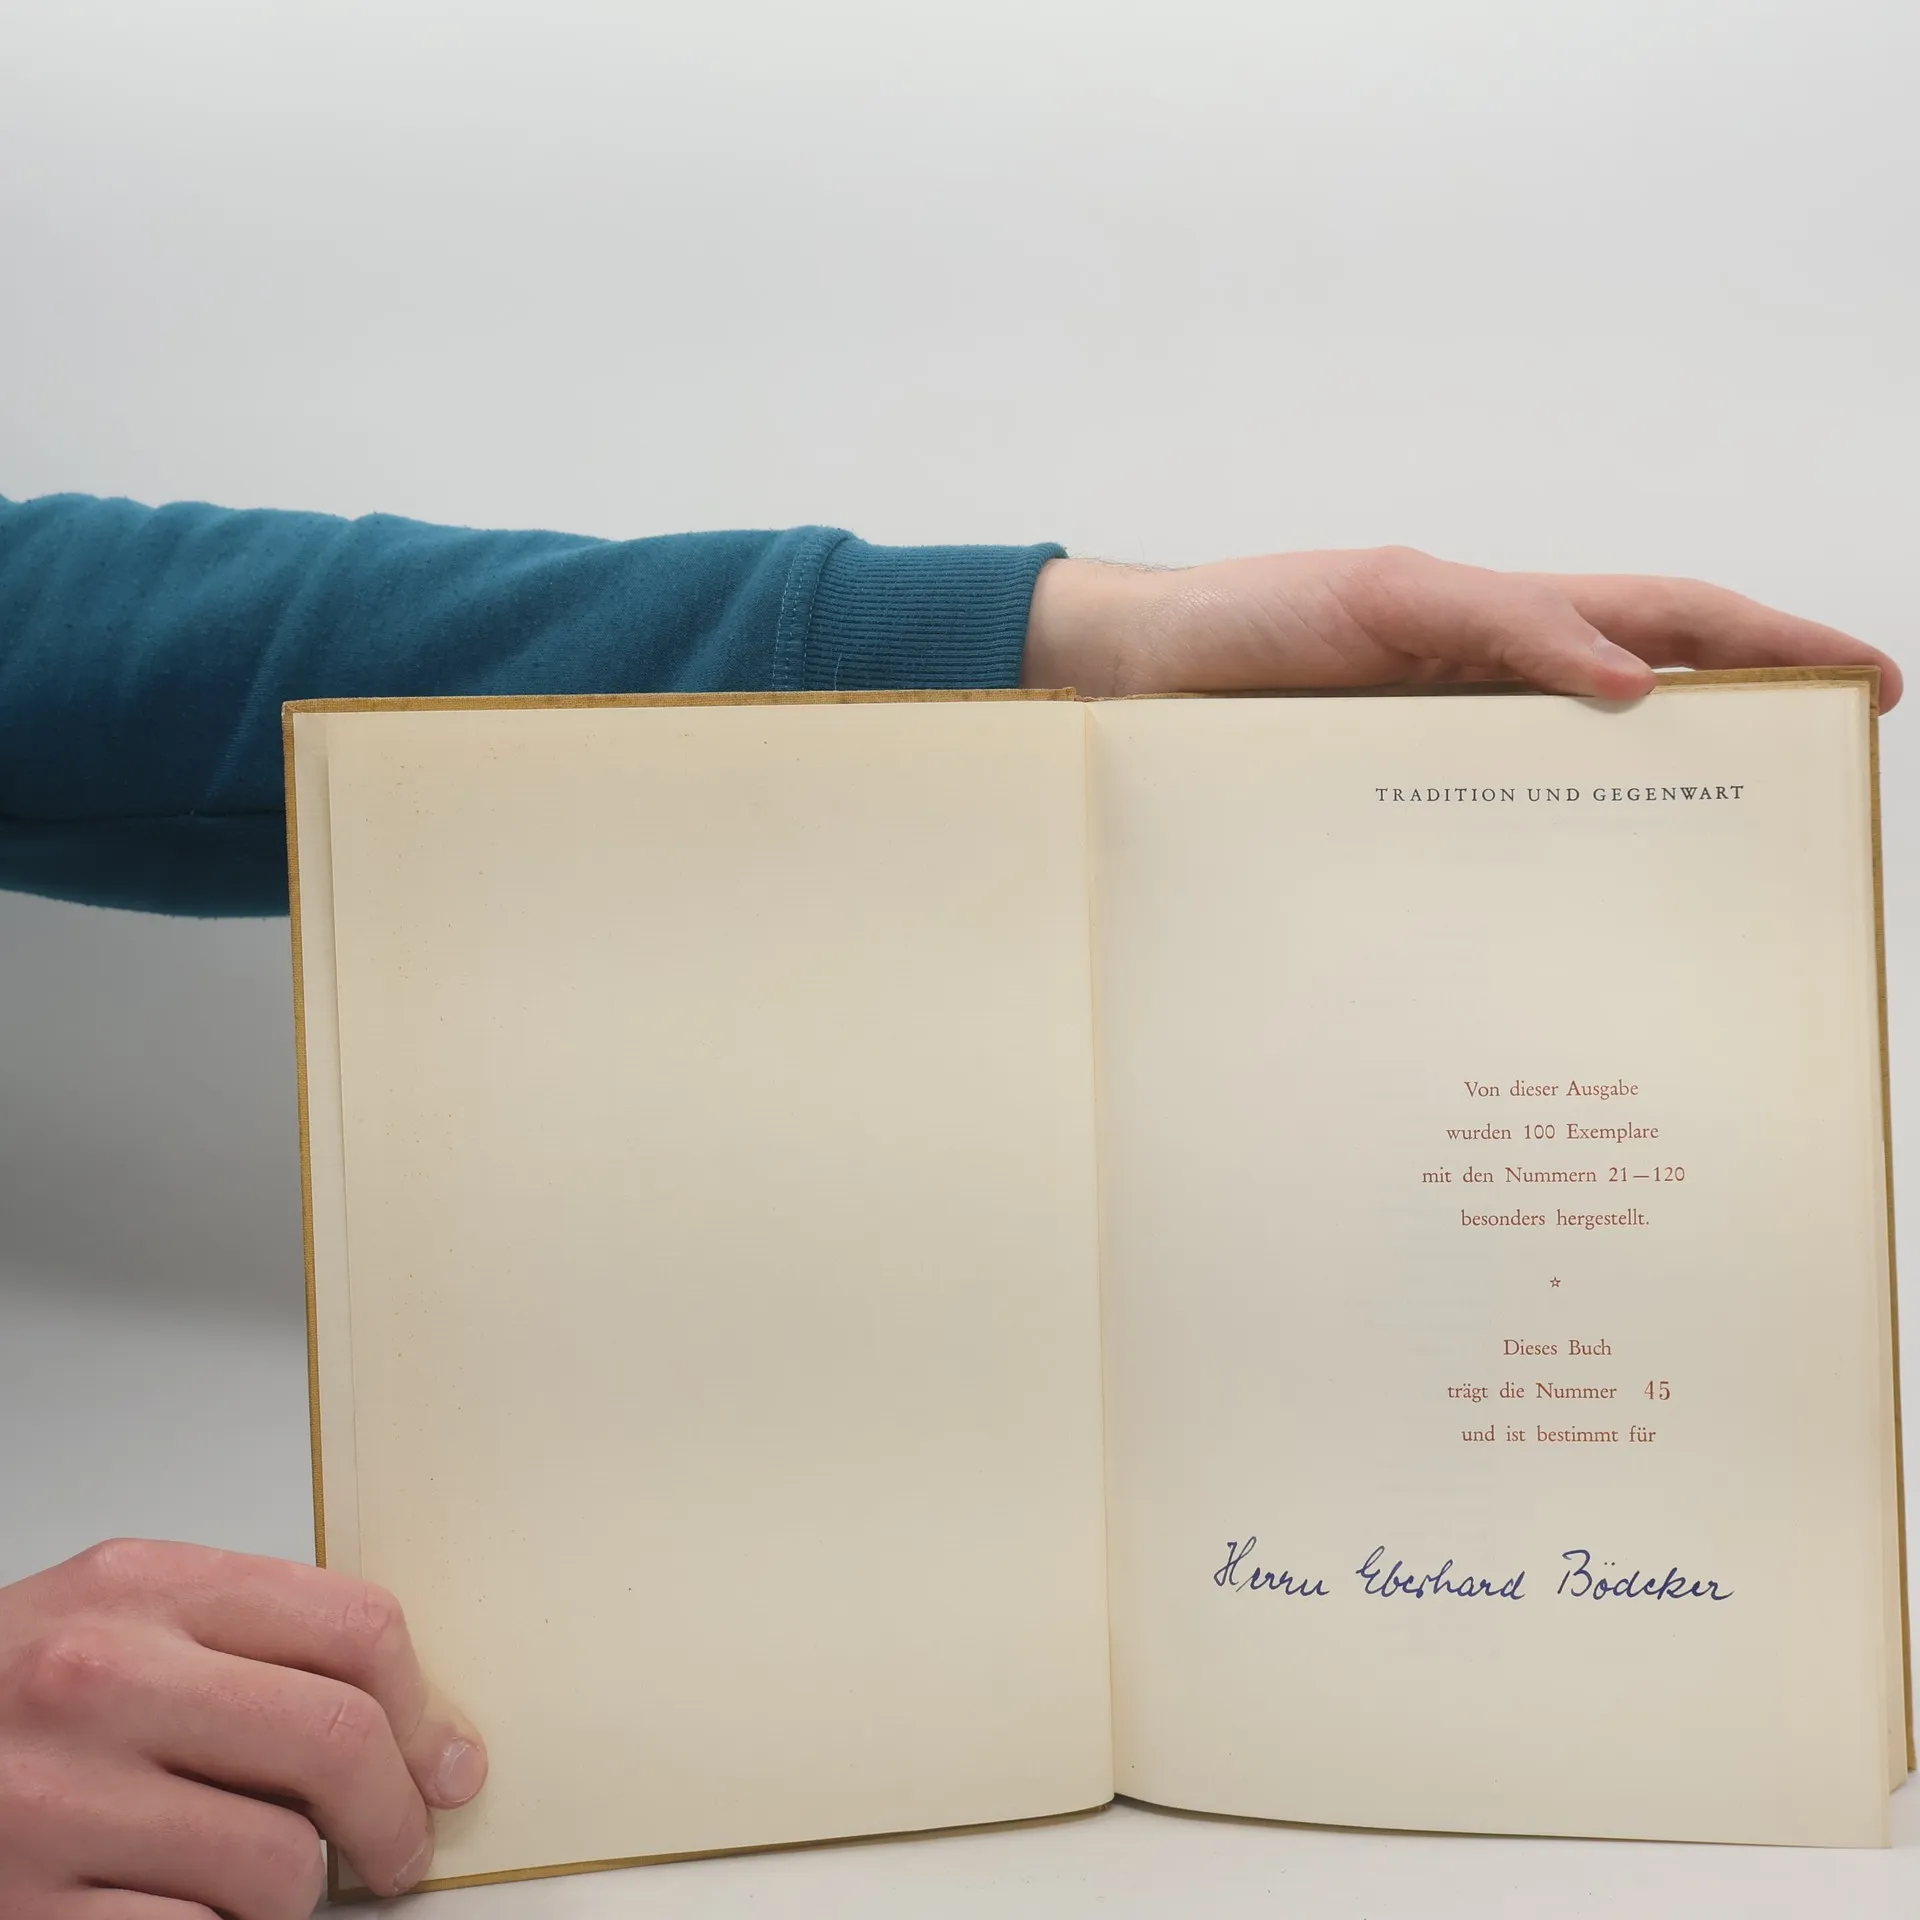 TRADITION UND GEGENWART
Von dieser Ausgabe
wurden 100 Exemplare
mit den Nummern 21—120
besonders hergestellt.
☆
Dieses Buch
trägt die Nummer 45
und ist bestimmt für
Herrn Eberhard Bödeker